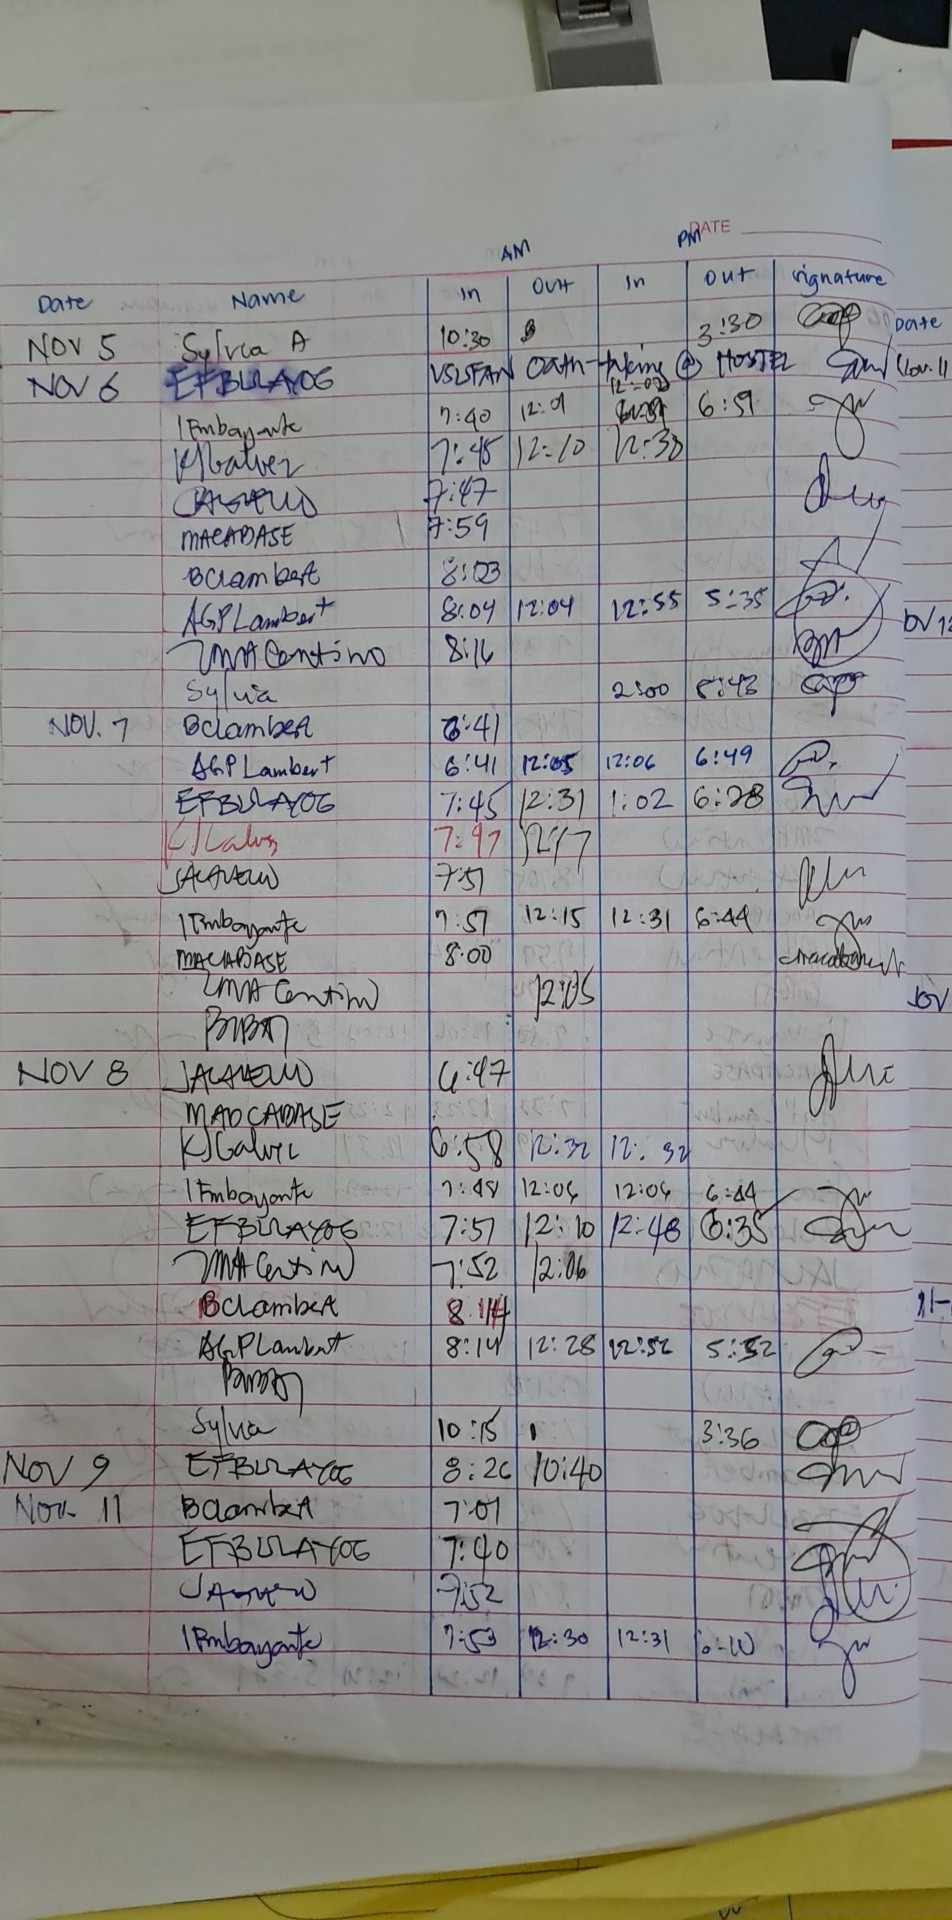 DATE
AM PM
Date Name In Out In Out signature
NOV 5 Sylvia A 10:30 3:30
Date
NOV 6 EFBULAYOG VSLFAN Oath-taking @ HOSTEL
Nov. 11
12:02
IEmbayante 7:40 12:01 6:59
KJGalvez 7:45 12:10 12:30
7:47
MACABASE 7:59
BClambert 8:03
AGPLambert 8:04 12:04 12:55 5:35
JMACentino 8:16
Sylvia 2:00 5:43
NOV. 7 BClambert 6:41
AGPLambert 6:41 12:05 12:06 6:49
EFBULAYOG 7:45 12:31 1:02 6:28
KJGalvez 7:47 12:17
7:51
IEmbayante 7:57 12:15 12:31 6:44
MACABASE 8:00
JMACentino 12:05
NOV 8 6:47
MADCABASE
KJGalvez 6:58 12:32 12:32
IEmbayante 7:48 12:06 12:06 6:44
EFBULAYOG 7:51 12:10 12:48 6:35
JMACentino 7:52 12:06
BClambert 8:14
AGPLambert 8:14 12:28 12:52 5:52
Sylvia 10:15 3:36
NOV 9 EFBULAYOG 8:26 10:40
Nov. 11 BClambert 7:01
EFBULAYOG 7:40
7:52
IEmbayante 7:53 12:30 12:31